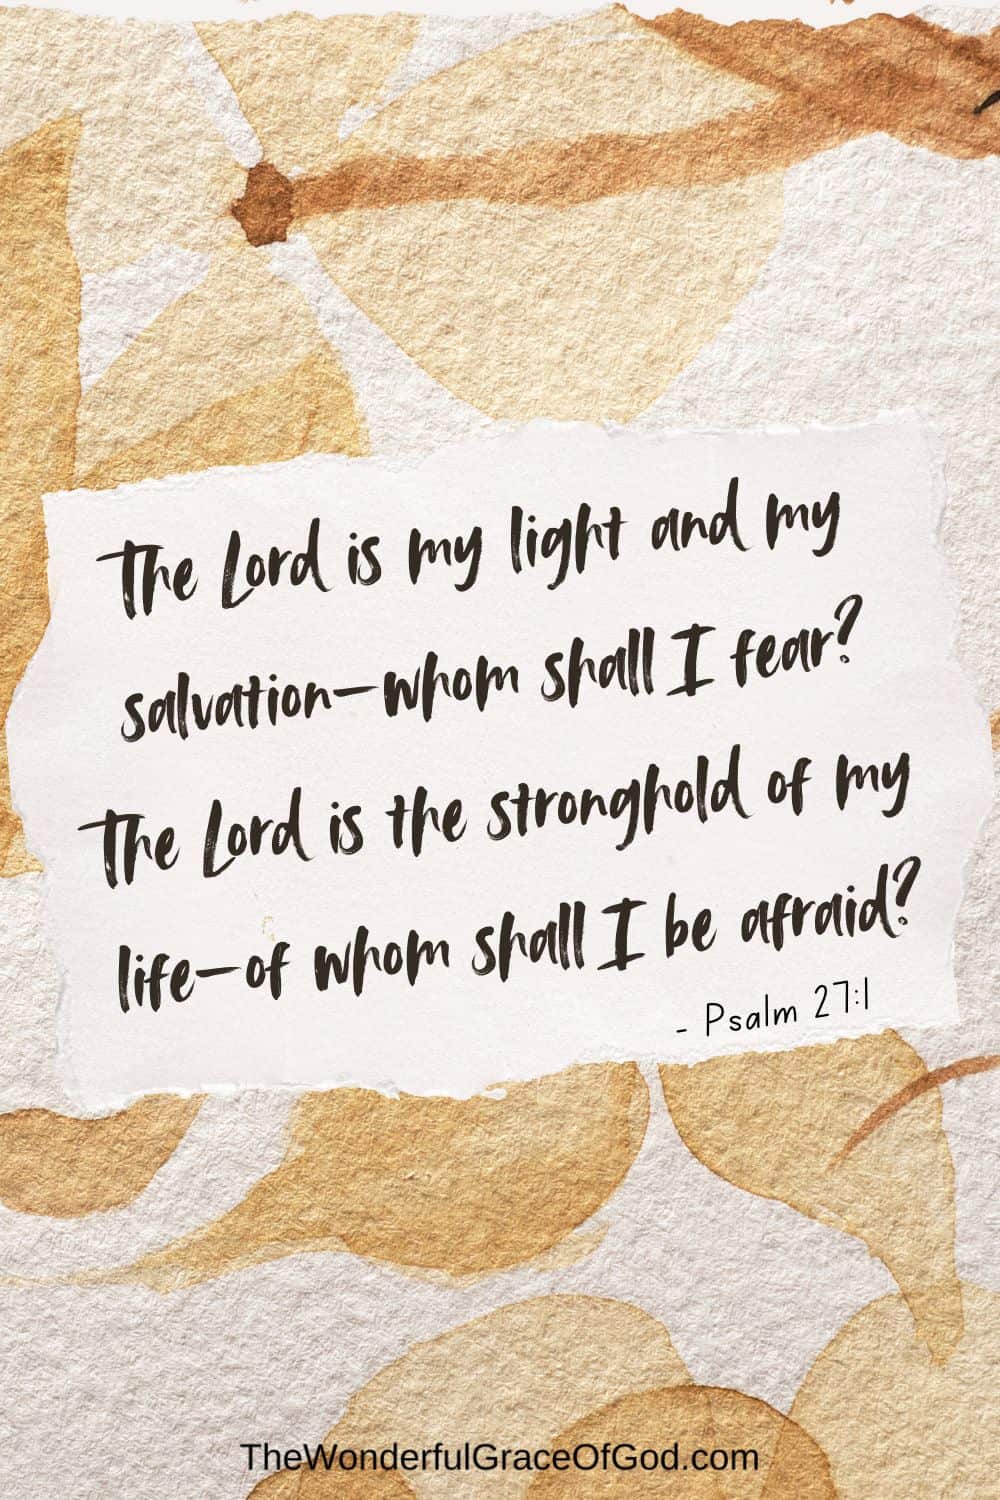 The Lord is my light and my
salvation—whom shall I fear?
The Lord is the stronghold of my
life—of whom shall I be afraid?
- Psalm 27:1
TheWonderfulGraceOfGod.com